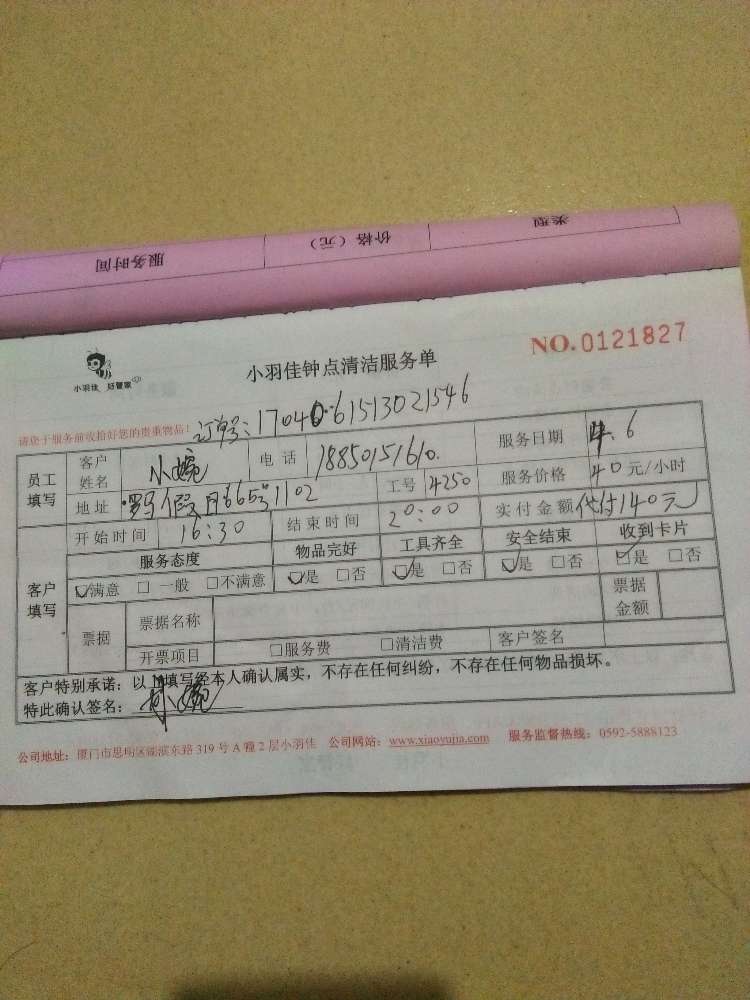 类型
价格（元）
服务时间
NO.0121827
小羽佳 好管家
小羽佳钟点清洁服务单
请您于服务前收拾好您的贵重物品！
订单号：1704061513021546
员工填写 客户姓名 小婉 电话 18850151610. 服务日期 4.6
地址 假日665号1102 工号 4250 服务价格 40元/小时
开始时间 16:30 结束时间 20:00 实付金额 代付140元
客户填写 服务态度 物品完好 工具齐全 安全结束 收到卡片
☑满意 □一般 □不满意 ☑是 □否 ☑是 □否 ☑是 □否 ☑是 □否
票据 票据名称 票据金额
开票项目 □服务费 □清洁费 客户签名
客户特别承诺：以上填写经本人确认属实，不存在任何纠纷，不存在任何物品损坏。
特此确认签名：林婉
公司地址：厦门市思明区湖滨东路319号A幢2层小羽佳 公司网站：www.xiaoyujia.com 服务监督热线：0592-5888123